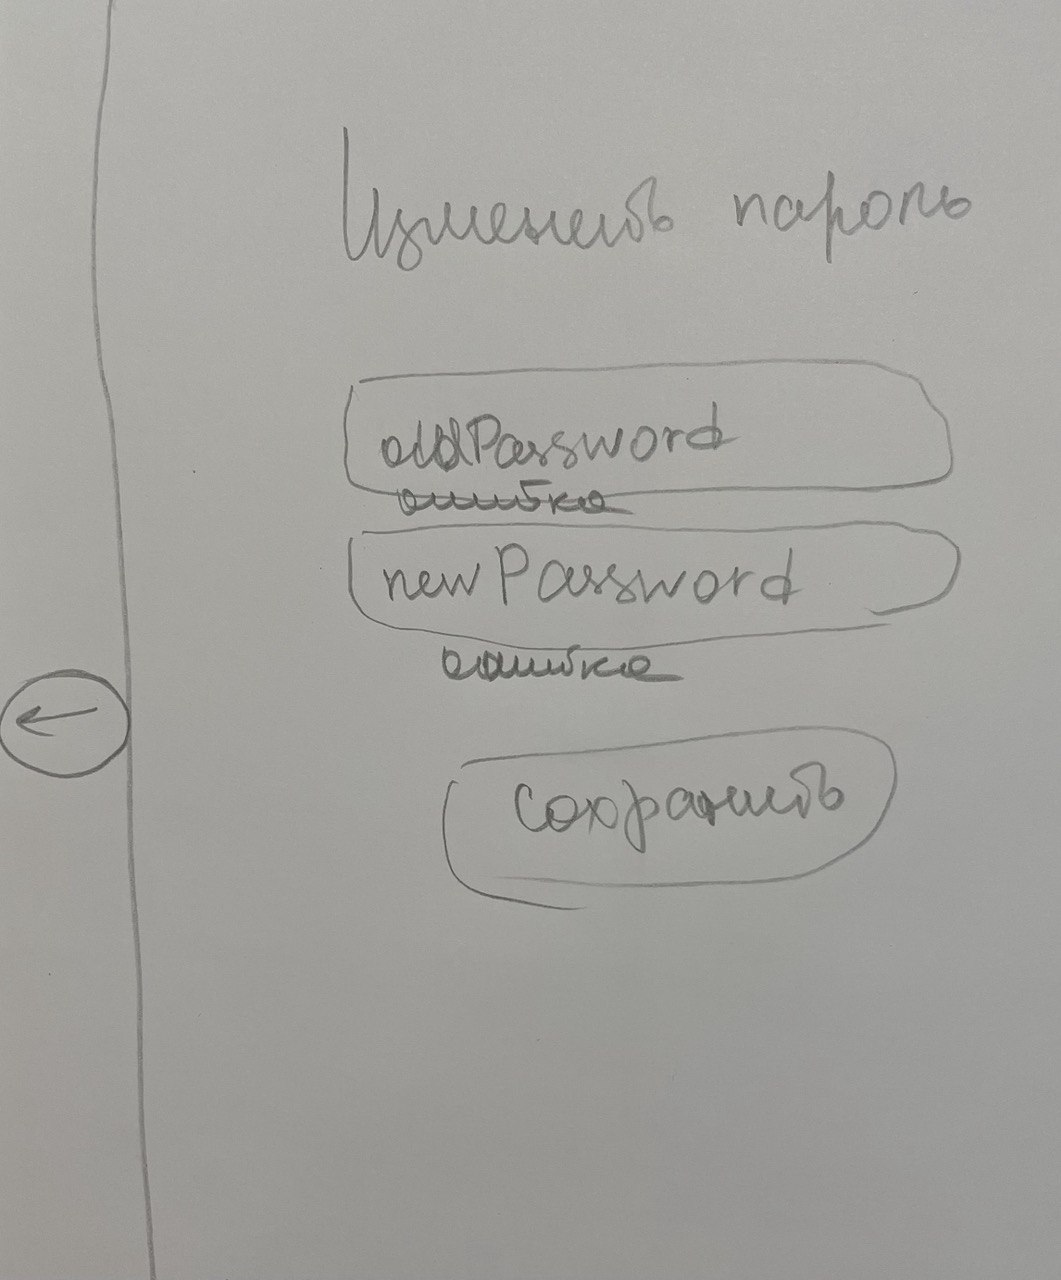 Изменить пароль
oldPassword
ошибка
newPassword
ошибка
сохранить